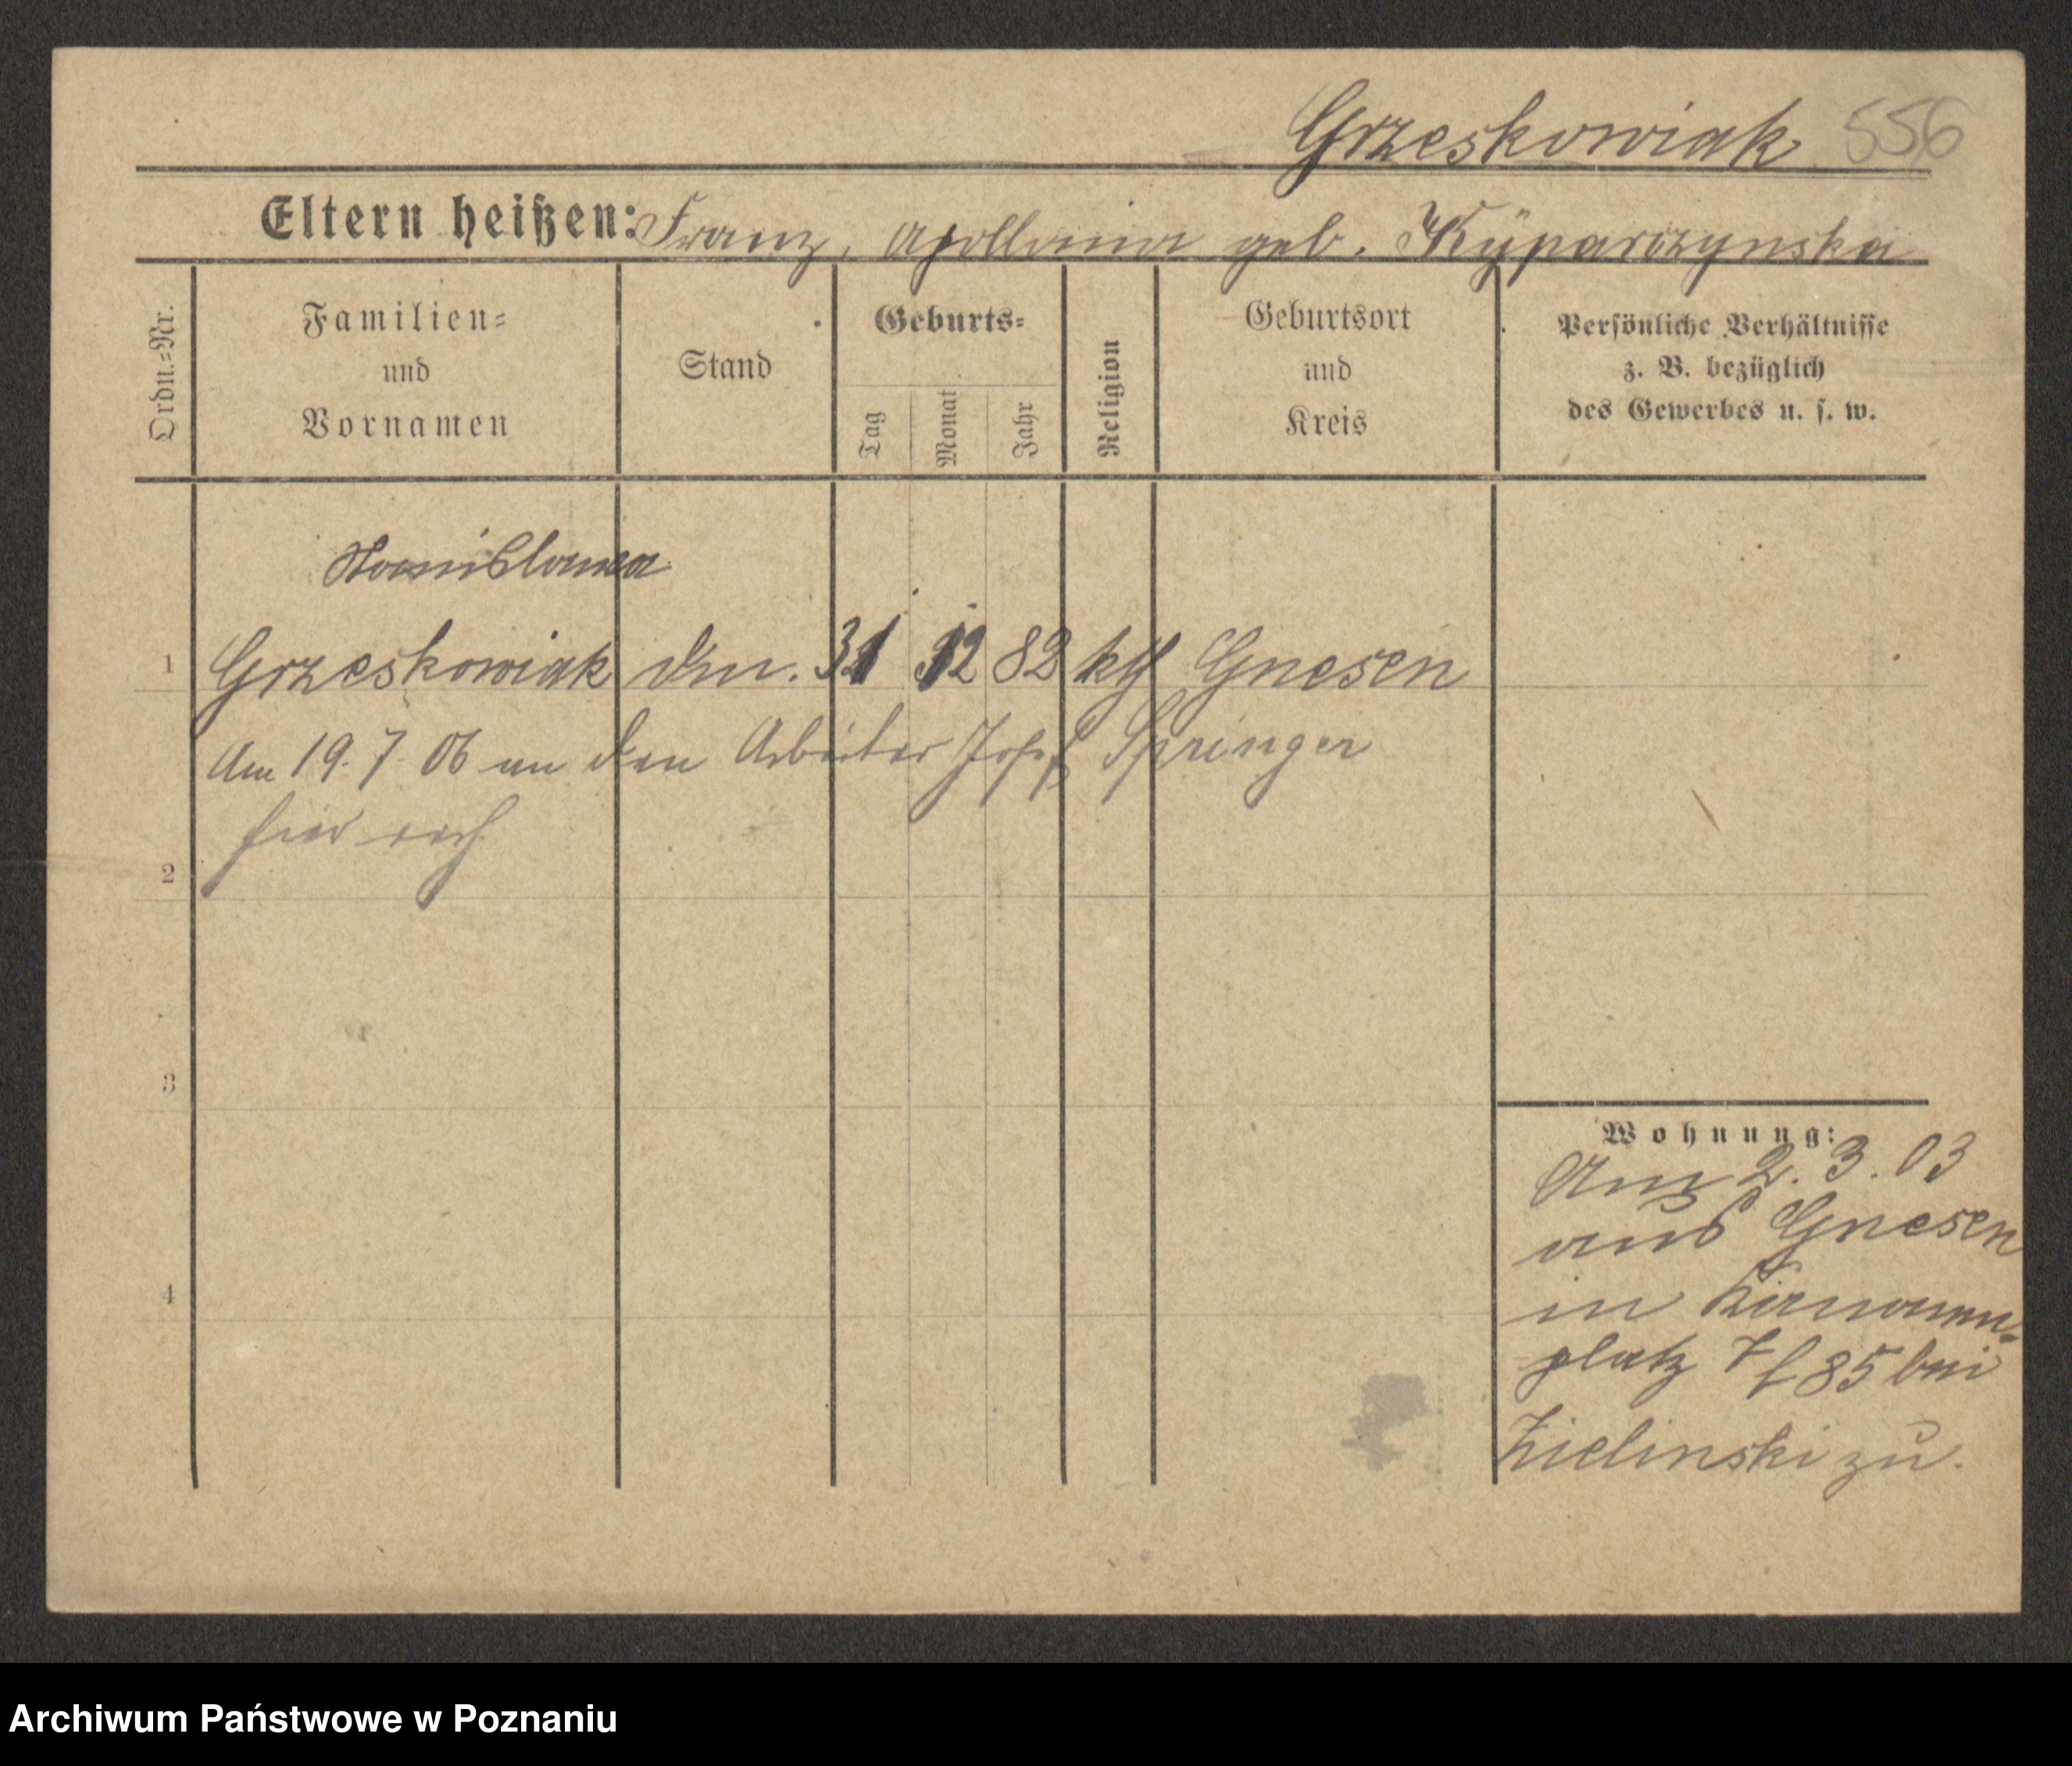 Grzeskowiak 556
Eltern heißen: Franz, Apollonia geb. Kÿparczynska
Ordn.=Nr.
Familien=
und
Vornamen
Stand
Geburts=
Tag
Monat
Jahr
Religion
Geburtsort
und
Kreis
Persönliche Verhältnisse
z. B. bezüglich
des Gewerbes u. s. w.
Stanislawa
1 Grzeskowiak 31 12 82 kth Gnesen
Am 19. 7. 06 an den Arbeiter Josef Springer
hier verh
2
3
4
Wohnung:
Am 2. 3. 03
aus Gnesen
in
platz 7 b 85 bei
Zielinski zu.
Archiwum Państwowe w Poznaniu